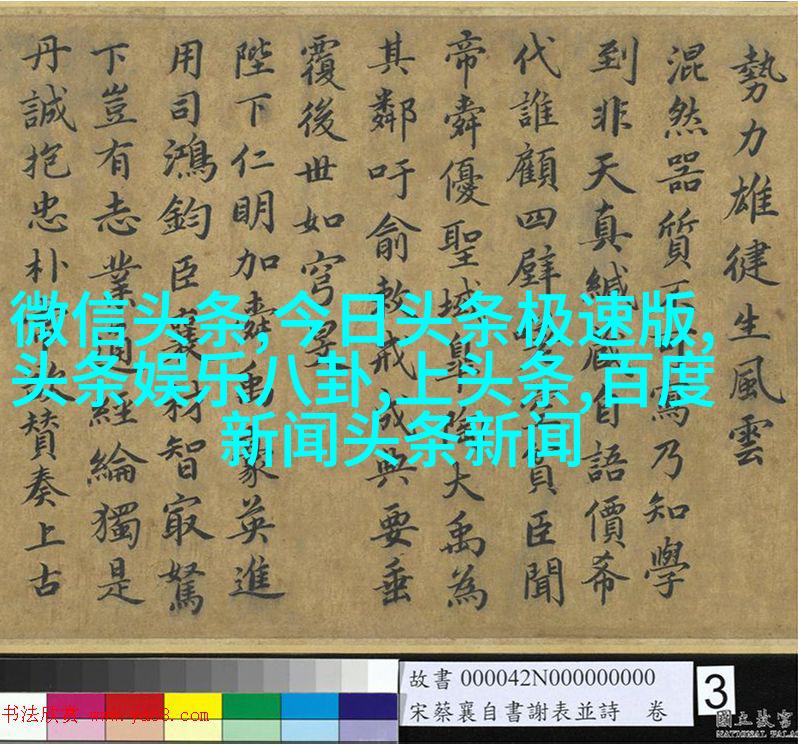 勢力雄徤生風雲
混然器質寫乃知學
到非天真緘自語價希
代誰顧四壁臣聞
帝舜優聖域皐陶大禹為
其鄰吁俞敕戒成典要垂
覆後世如穹
陛下仁明加舜禹豪英進
用司鴻鈞臣襄材智最駑
下豈有志業通經綸獨是
丹誠抱忠朴贊奏上古
微信头条,今日头条极速版,
头条娱乐八卦,上头条,百度
新闻头条新闻
故書 000042N000000000
宋蔡襄自書謝表並詩 卷
3
國立故宮
NATIONAL PALA
书法欣赏